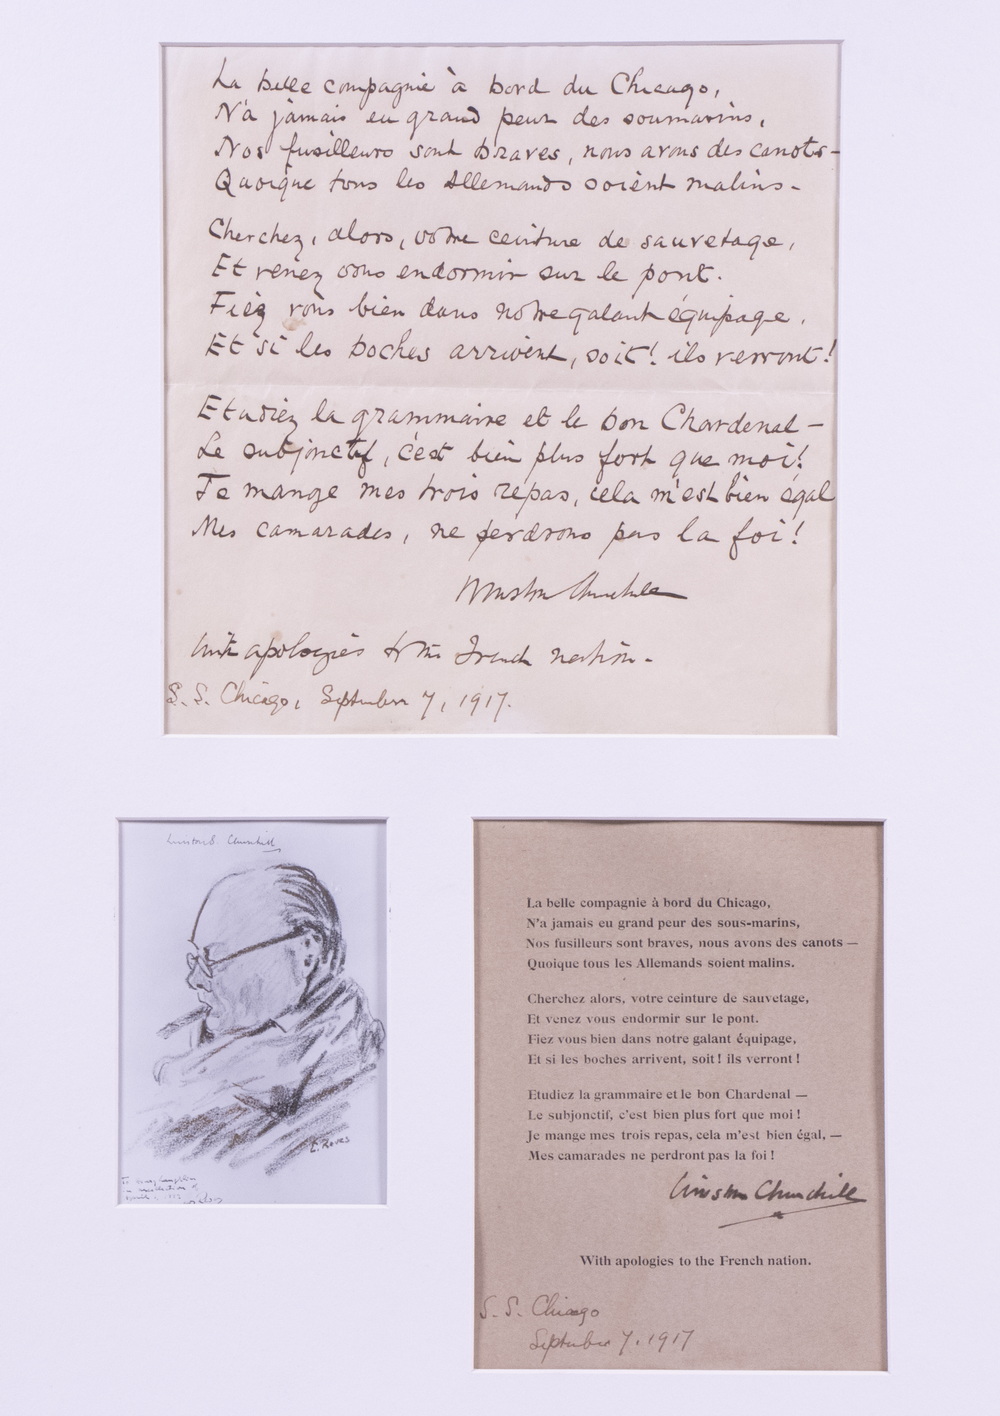 La belle compagnie à bord du Chicago,
N'a jamais eu grand peur des soumarins,
Nos fusilleurs sont braves, nous avons des canots -
Quoique tous les Allemands soient malins -
Cherchez, alors, votre ceinture de sauvetage,
Et venez vous endormir sur le pont.
Fiéz vous bien dans notre galant équipage,
Et si les boches arrivent, soit! ils verront!
Etudiez la grammaire et le bon Chardenal -
Le subjonctif, c'est bien plus fort que moi!
Je mange mes trois repas, cela m'est bien égal
Mes camarades, ne perdrons pas la foi!
Winston Churchill
With apologies to the French nation -
S. S. Chicago, September 7, 1917.
Winston S. Churchill
La belle compagnie à bord du Chicago,
N'a jamais eu grand peur des sous-marins,
Nos fusilleurs sont braves, nous avons des canots —
Quoique tous les Allemands soient malins.
Cherchez alors, votre ceinture de sauvetage,
Et venez vous endormir sur le pont.
Fiez vous bien dans notre galant équipage,
Et si les boches arrivent, soit! ils verront!
Etudiez la grammaire et le bon Chardenal —
Le subjonctif, c'est bien plus fort que moi!
Je mange mes trois repas, cela m'est bien égal, —
Mes camarades ne perdront pas la foi!
Winston Churchill
With apologies to the French nation.
S. S. Chicago
September 7, 1917